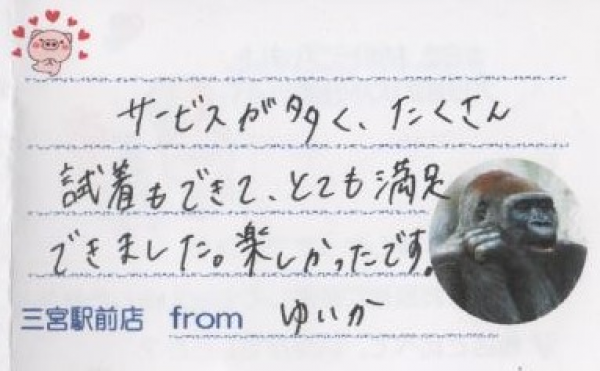 サービスが多く、たくさん
試着もできて、とても満足
できました。楽しかったです。
三宮駅前店 from ゆいか